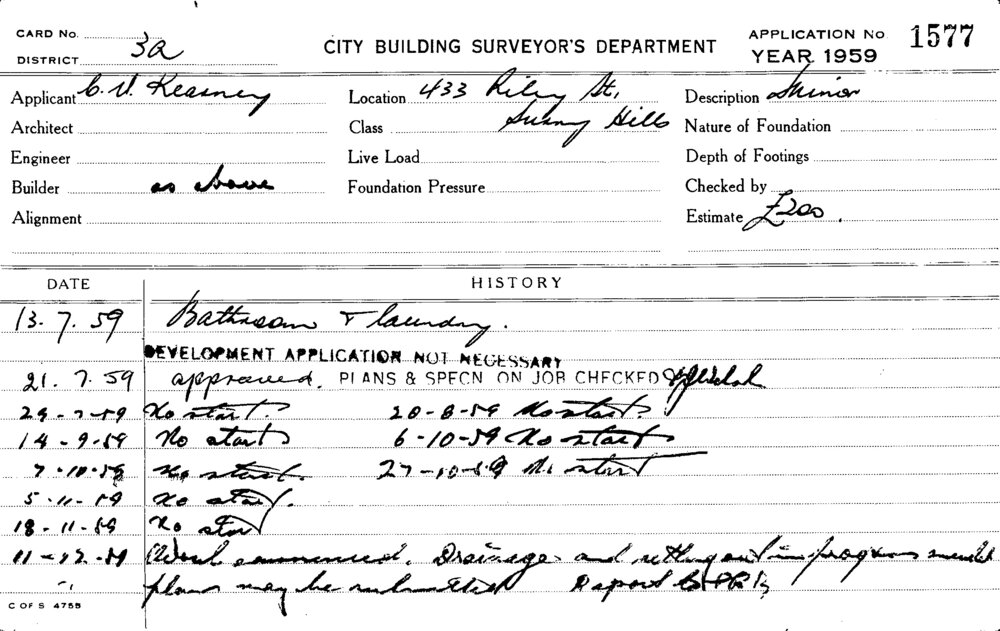 CARD No.
DISTRICT 3a
CITY BUILDING SURVEYOR'S DEPARTMENT
APPLICATION No 1577
YEAR 1959
Applicant C. V. Kearney
Location 433 Riley St,
Description Minor
Architect
Class Surry Hills
Nature of Foundation
Engineer
Live Load
Depth of Footings
Builder as above
Foundation Pressure
Checked by
Alignment
Estimate £200.
DATE HISTORY
13.7.59 Bathroom & laundry.
DEVELOPMENT APPLICATION NOT NECESSARY
21.7.59 approved. PLANS & SPECN ON JOB CHECKED
29-7-59 No start. 20-8-59 No start.
14-9-59 No start 6-10-59 No start
7-10-59 No start. 27-10-59 No start
5-11-59 No start.
18-11-59 No start
11-12-59 Work commenced. Drainage and setting out in progress
plans may be submitted Report
C OF S 4755